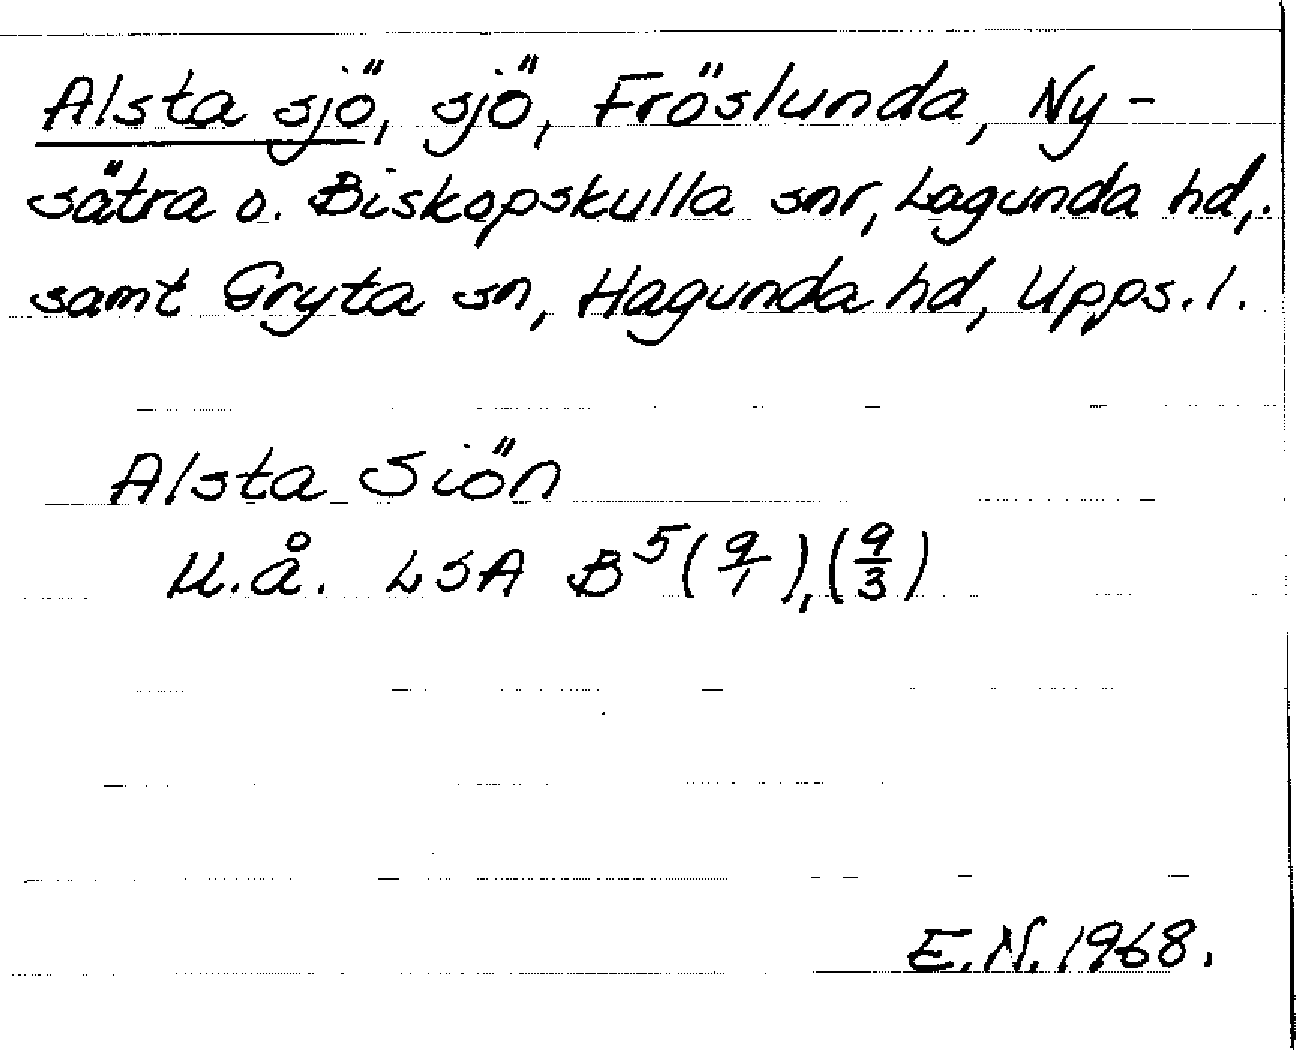 Alsta sjö, sjö, Fröslunda, Ny-
sätra o. Biskopskulla snr, Lagunda hd,
samt Gryta sn, Hagunda hd, Upps. l.
Alsta Siön
U.å. LSA B⁵(9/1),(9/3)
E.N. 1968.